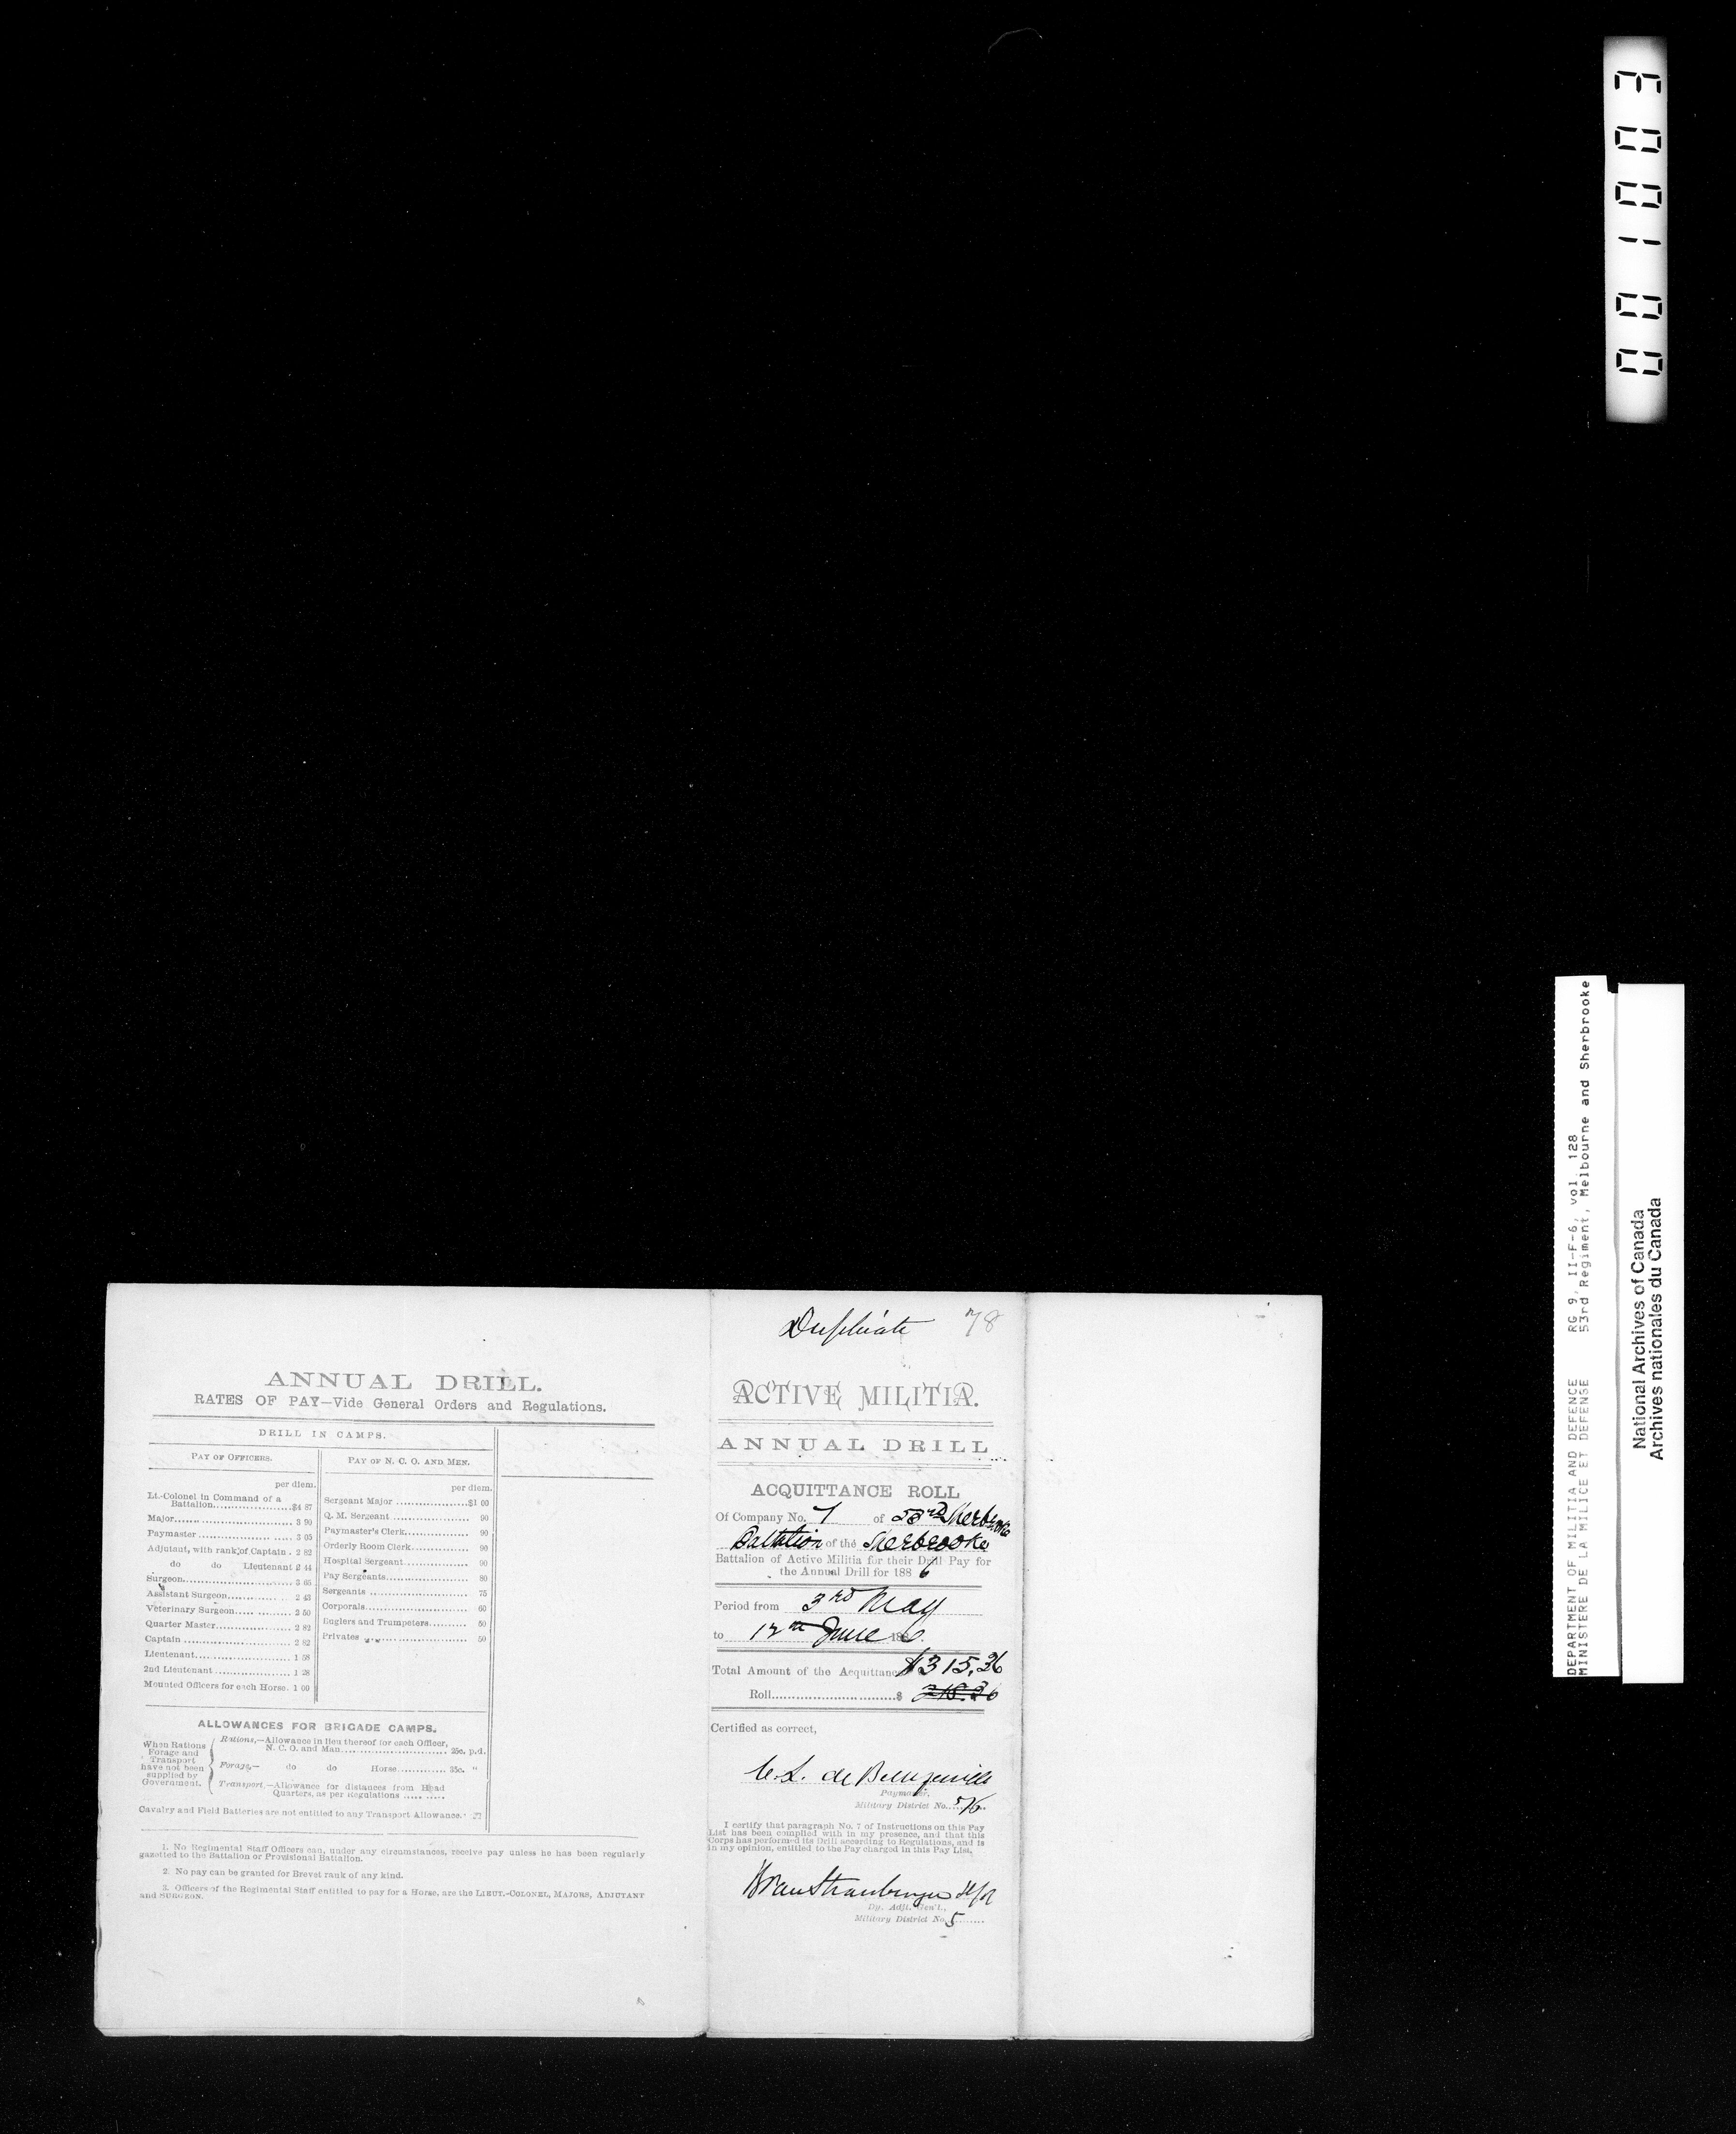 001003
DEPARTMENT OF MILITIA AND DEFENCE RG 9, II-F-6, vol. 128
MINISTERE DE LA MILICE ET DEFENSE 53rd Regiment, Melbourne and Sherbrooke
National Archives of Canada
Archives nationales du Canada
ANNUAL DRILL.
RATES OF PAY—Vide General Orders and Regulations.
DRILL IN CAMPS.
PAY OF OFFICERS.
per diem.
Lt.-Colonel in Command of a
Battalion....................$4 87
Major............................ 3 90
Paymaster ...................... 3 05
Adjutant, with rank of Captain . 2 82
do do Lieutenant 2 44
Surgeon.......................... 3 65
Assistant Surgeon.............. 2 43
Veterinary Surgeon............. 2 50
Quarter Master................. 2 82
Captain ......................... 2 82
Lieutenant....................... 1 58
2nd Lieutenant .................. 1 28
Mounted Officers for each Horse. 1 00
PAY OF N. C. O. AND MEN.
per diem.
Sergeant Major ..................$1 00
Q. M. Sergeant ................... 90
Paymaster's Clerk............... 90
Orderly Room Clerk.............. 90
Hospital Sergeant................ 90
Pay Sergeants.................... 80
Sergeants ........................ 75
Corporals......................... 60
Buglers and Trumpeters......... 50
Privates ......................... 50
ALLOWANCES FOR BRIGADE CAMPS.
When Rations
Forage and
Transport
have not been
supplied by
Government.
Rations,—Allowance in lieu thereof for each Officer,
N. C. O. and Man........................... 25c. p.d.
Forage,— do do Horse............. 35c. "
Transport,—Allowance for distances from Head
Quarters, as per Regulations ..... .....
Cavalry and Field Batteries are not entitled to any Transport Allowance.
1. No Regimental Staff Officers can, under any circumstances, receive pay unless he has been regularly
gazetted to the Battalion or Provisional Battalion.
2. No pay can be granted for Brevet rank of any kind.
3. Officers of the Regimental Staff entitled to pay for a Horse, are the LIEUT.-COLONEL, MAJORS, ADJUTANT
and SURGEON.
Duplicate 78
ACTIVE MILITIA.
ANNUAL DRILL
ACQUITTANCE ROLL
Of Company No. 7 of 53rd Sherbrooke
Battalion of the Sherbrooke
Battalion of Active Militia for their Drill Pay for
the Annual Drill for 1886
Period from 3rd May
to 12th June 1886.
Total Amount of the Acquittance $315.36
Roll..............................$
Certified as correct,
Paymaster,
Military District No. 5/6
I certify that paragraph No. 7 of Instructions on this Pay
List has been complied with in my presence, and that this
Corps has performed its Drill according to Regulations, and is
in my opinion, entitled to the Pay charged in this Pay List.
Dy. Adjt. Gen'l.,
Military District No. 5